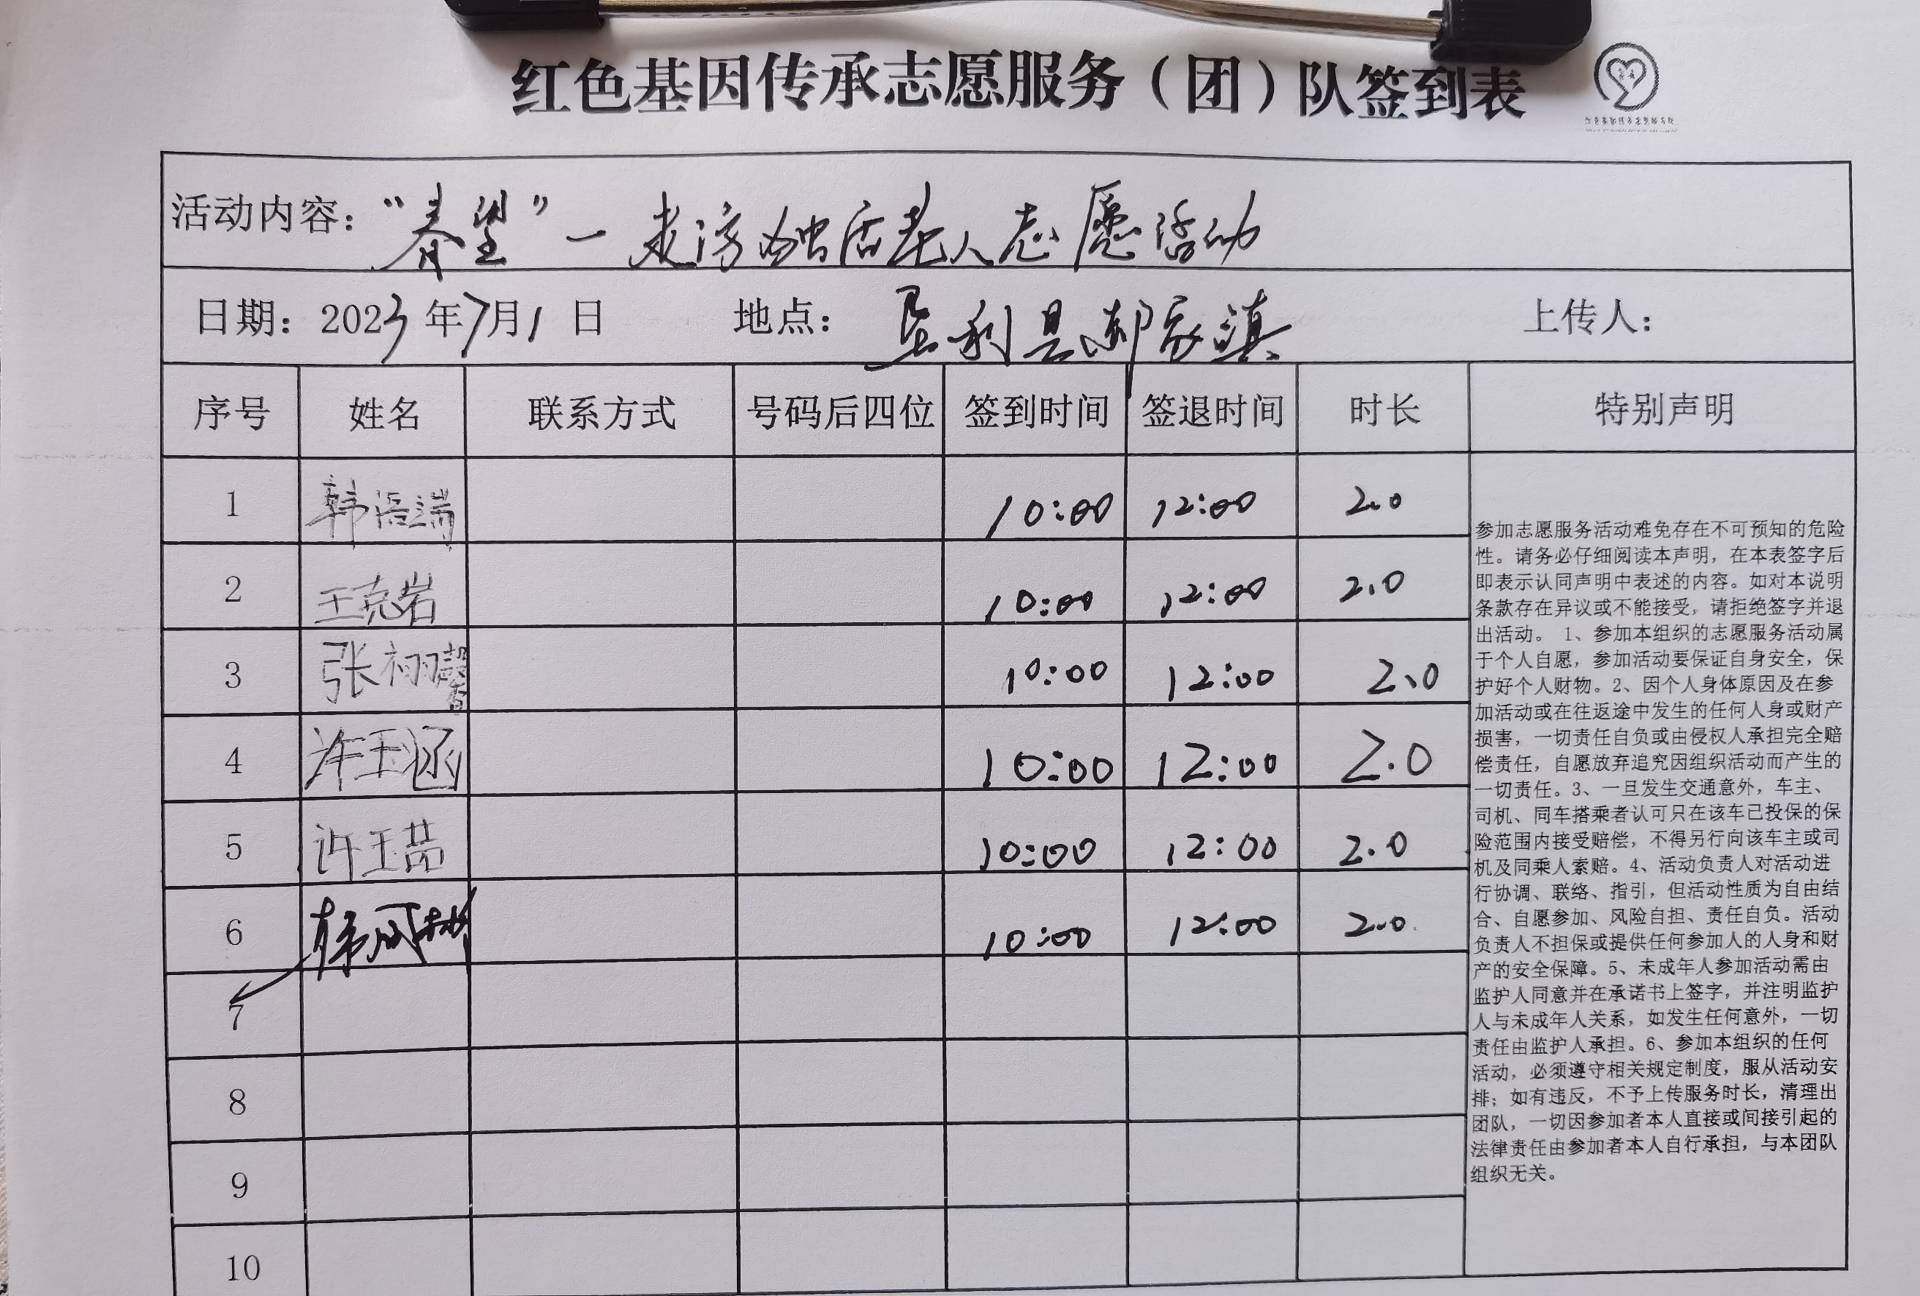 红色基因传承志愿服务（团）队签到表
活动内容：“春望”一走访独居老人志愿活动
日期：2023年7月1日 地点：垦利县郝家镇 上传人：
序号 姓名 联系方式 号码后四位 签到时间 签退时间 时长 特别声明
1 韩语端 10:00 12:00 2.0
2 王克岩 10:00 12:00 2.0
3 张栩馨 10:00 12:00 2.0
4 许玉涵 10:00 12:00 2.0
5 许玉喆 10:00 12:00 2.0
6 10:00 12:00 2.0
7
8
9
10
参加志愿服务活动难免存在不可预知的危险
性。请务必仔细阅读本声明，在本表签字后
即表示认同声明中表述的内容。如对本说明
条款存在异议或不能接受，请拒绝签字并退
出活动。 1、参加本组织的志愿服务活动属
于个人自愿，参加活动要保证自身安全，保
护好个人财物。2、因个人身体原因及在参
加活动或在往返途中发生的任何人身或财产
损害，一切责任自负或由侵权人承担完全赔
偿责任，自愿放弃追究因组织活动而产生的
一切责任。3、一旦发生交通意外，车主、
司机、同车搭乘者认可只在该车已投保的保
险范围内接受赔偿，不得另行向该车主或司
机及同乘人索赔。4、活动负责人对活动进
行协调、联络、指引，但活动性质为自由结
合、自愿参加、风险自担、责任自负。活动
负责人不担保或提供任何参加人的人身和财
产的安全保障。5、未成年人参加活动需由
监护人同意并在承诺书上签字，并注明监护
人与未成年人关系，如发生任何意外，一切
责任由监护人承担。6、参加本组织的任何
活动，必须遵守相关规定制度，服从活动安
排；如有违反，不予上传服务时长，清理出
团队，一切因参加者本人直接或间接引起的
法律责任由参加者本人自行承担，与本团队
组织无关。